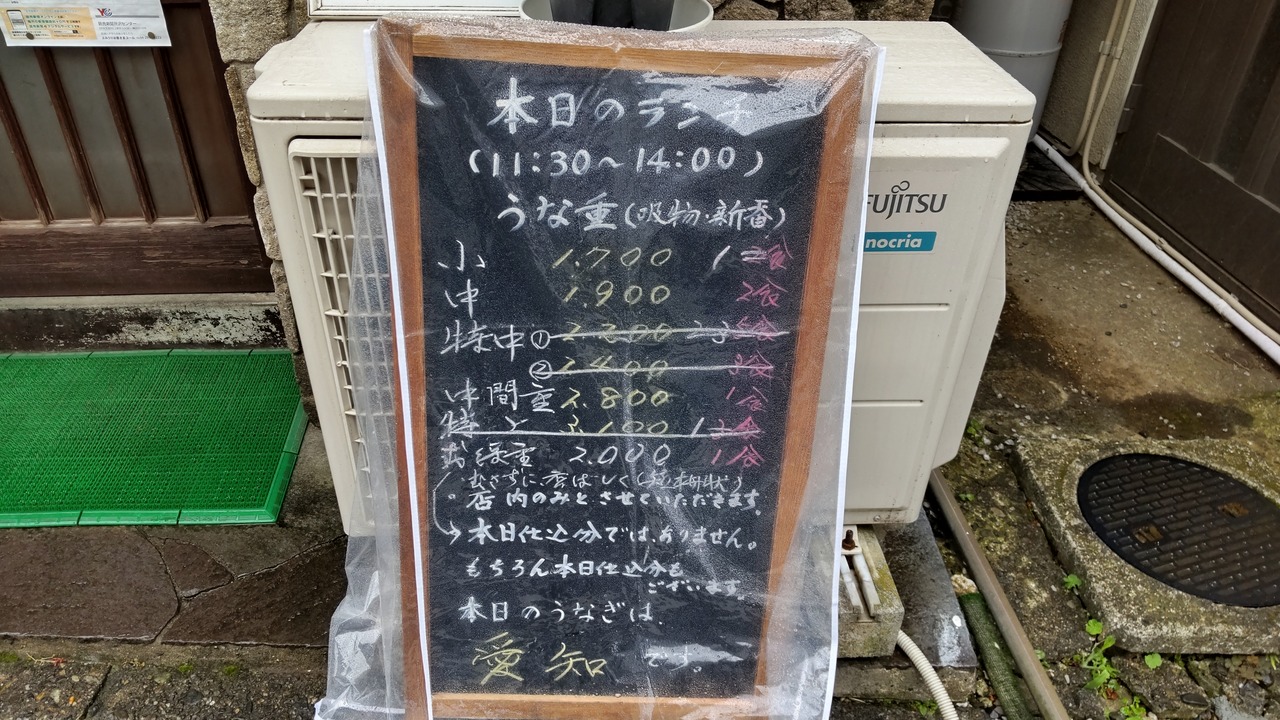 本日のランチ
(11:30~14:00)
うな重(吸物・新香)
小 1.700 1
中 1.900 2食
特中① 2.200 23
② 2.400
中間重 2.800 1食
特上 3.100 1
2.000 1食
店内のみとさせていただきます。
→本日仕込分では、ありません。
もちろん本日仕込分も
ございます。
本日のうなぎは、
愛知 です。
FUJITSU
nocria